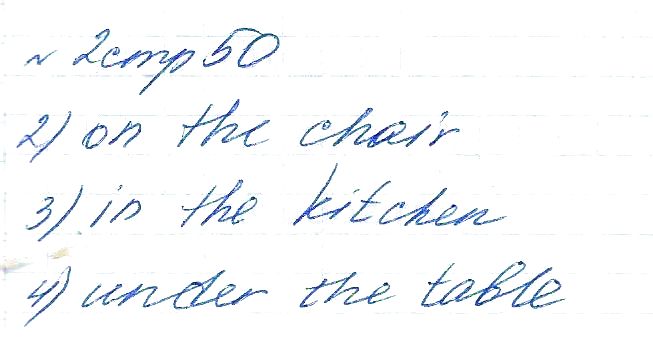 № 2 стр 50
2) on the chair
3) in the kitchen
4) under the table